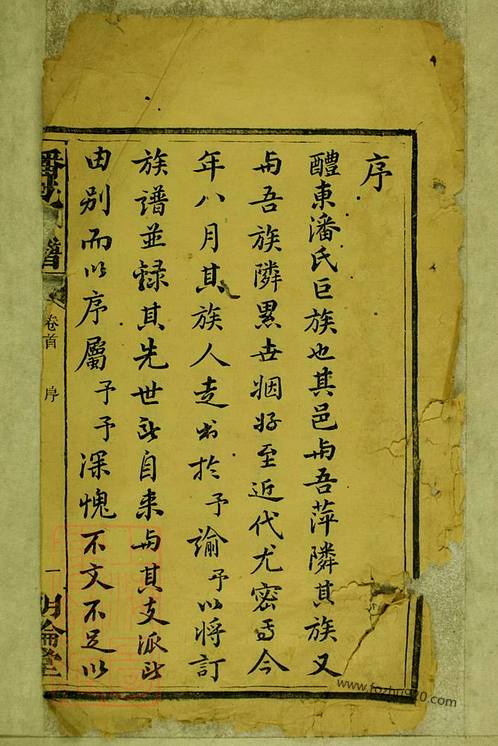 序
醴東潘氏巨族也其邑与吾萍隣其族又
与吾族隣累世姻好至近代尤密焉今
年八月其族人走书於予諭予以將訂
族譜並録其先世所自来与其支派所
由别而以序屬予予深愧不文不足以
潘氏 譜
卷首 序
一
明倫堂